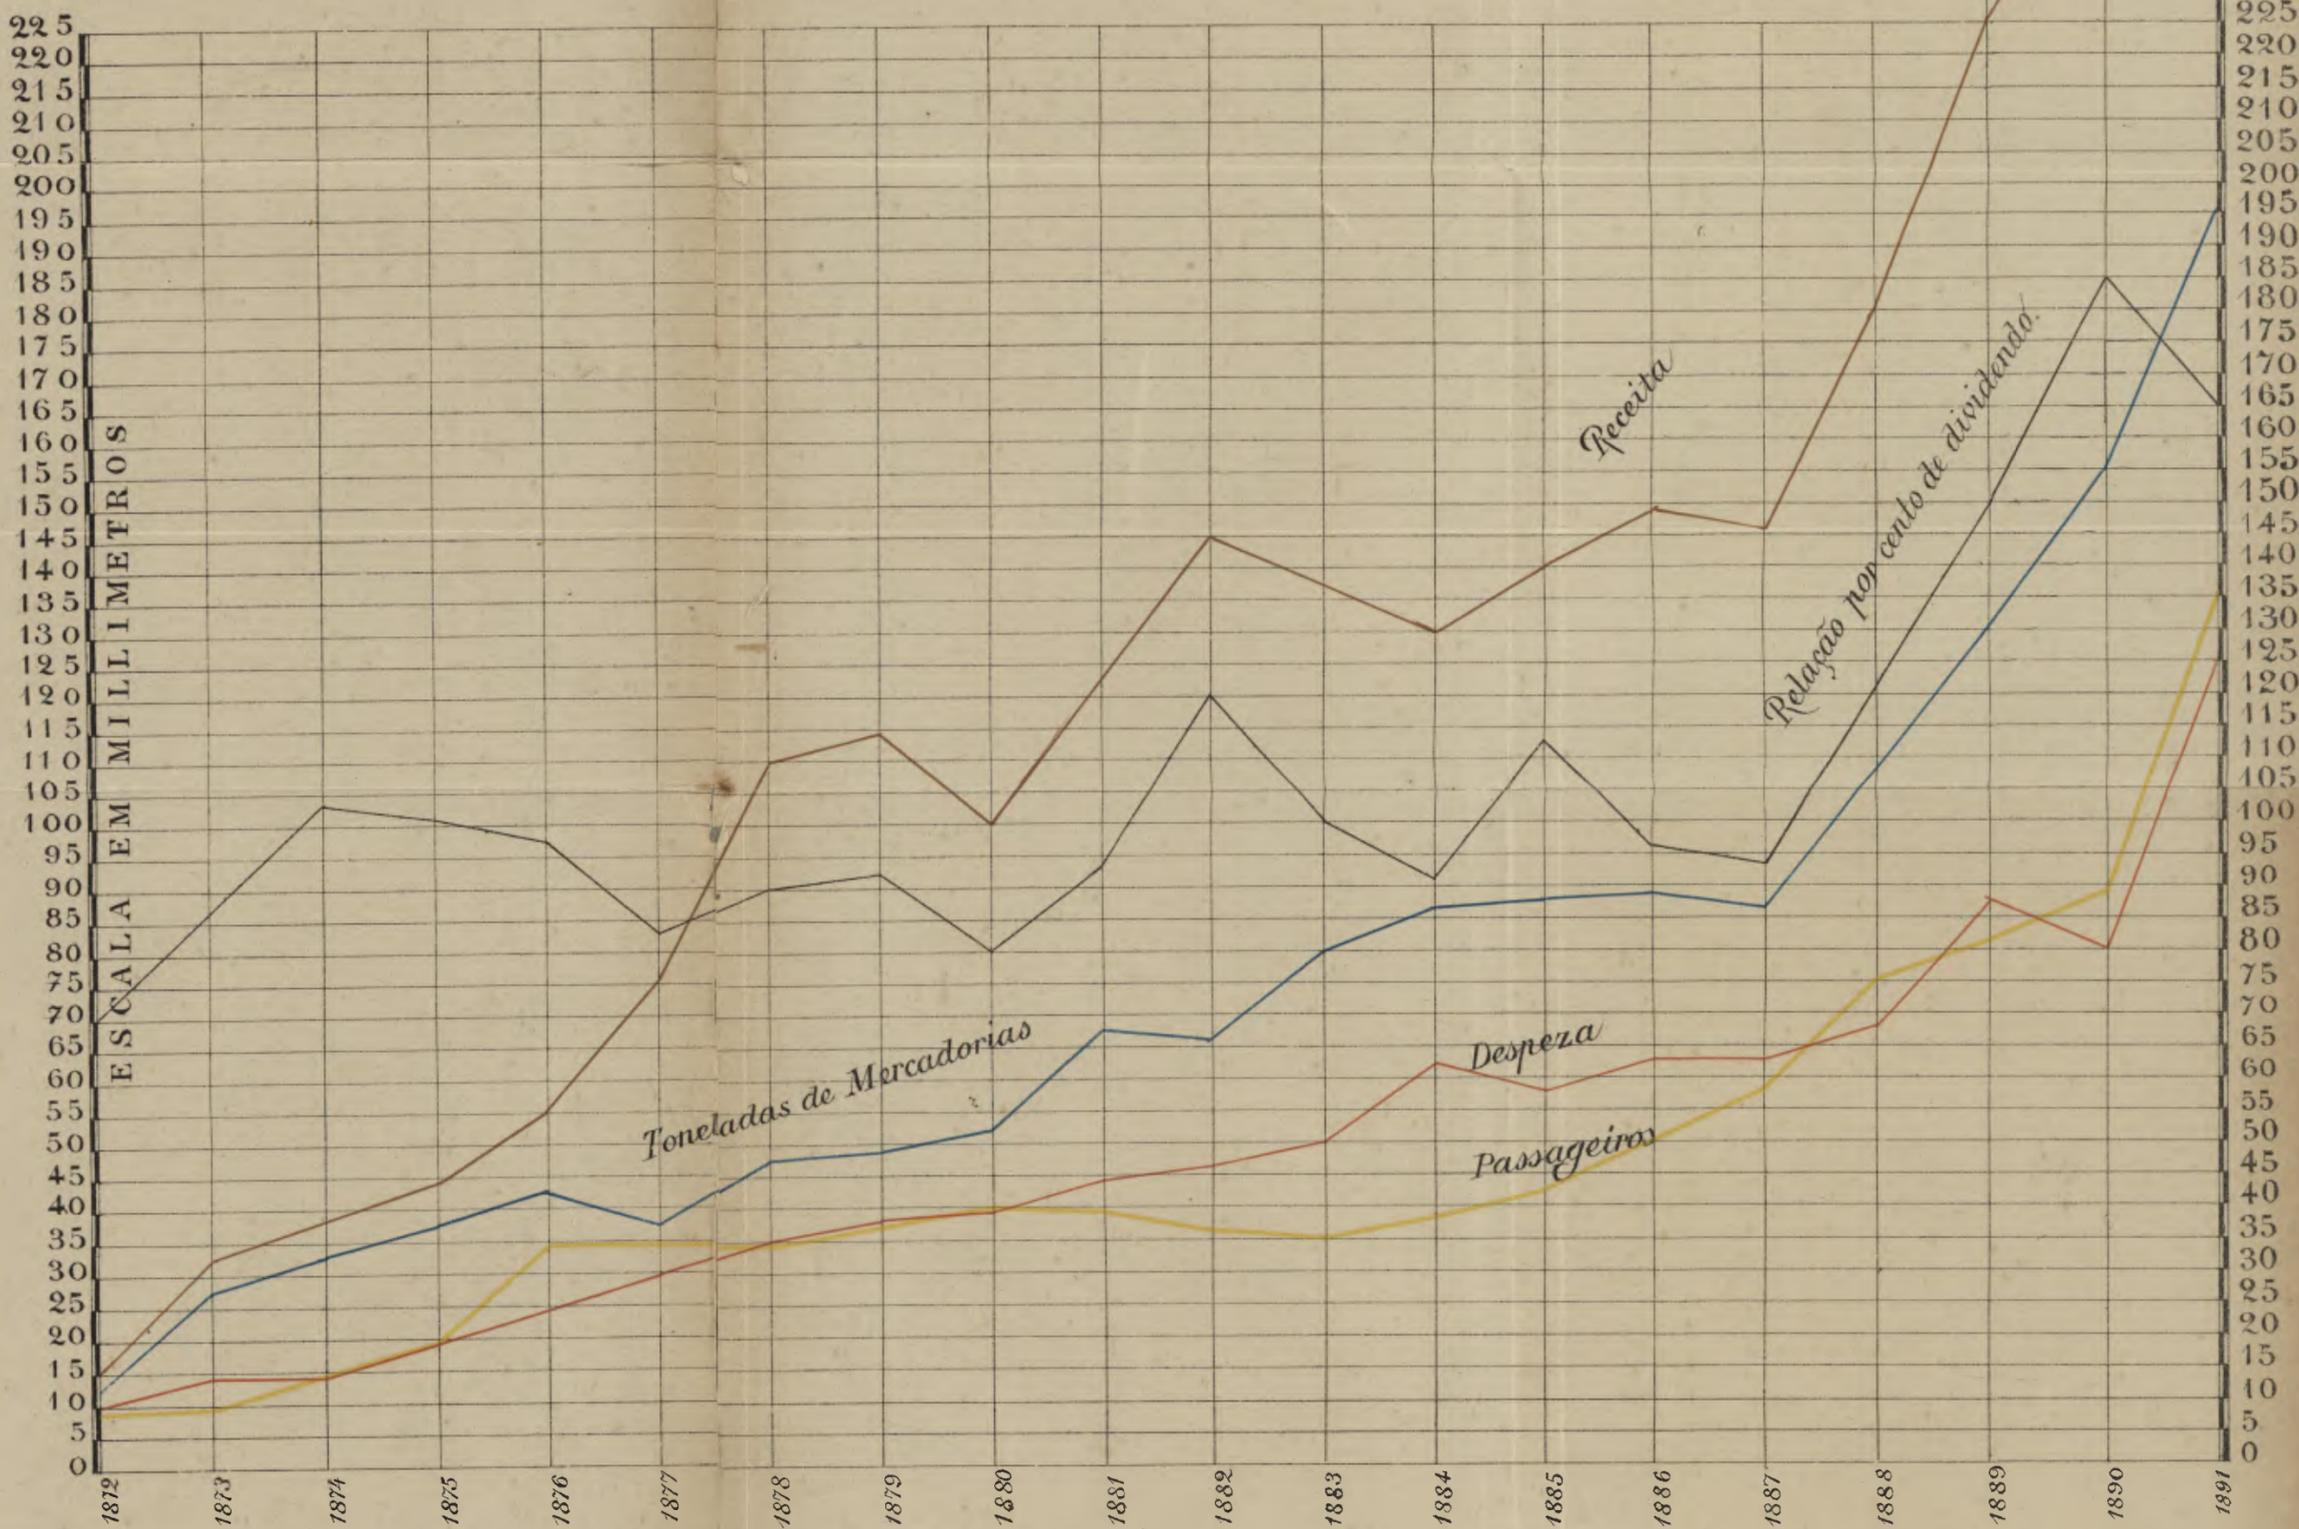 225
220
215
210
205
200
195
190
185
180
175
170
165
160
155
150
145
140
135
130
125
120
115
110
105
100
95
90
85
80
75
70
65
60
55
50
45
40
35
30
25
20
15
10
5
0
ESCALA EM MILLIMETROS
Receita
Relação por cento de dividendo.
Toneladas de Mercadorias
Despeza
Passageiros
225
220
215
210
205
200
195
190
185
180
175
170
165
160
155
150
145
140
135
130
125
120
115
110
105
100
95
90
85
80
75
70
65
60
55
50
45
40
35
30
25
20
15
10
5
0
1872 1873 1874 1875 1876 1877 1878 1879 1880 1881 1882 1883 1884 1885 1886 1887 1888 1889 1890 1891